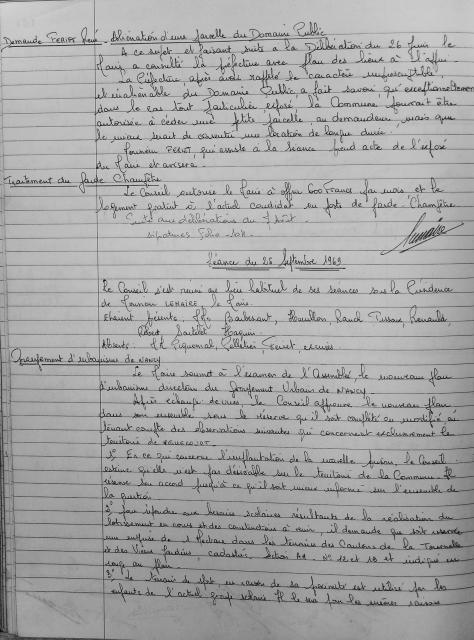 Demande FERRY René - Aliénation d'une parcelle du Domaine Public
A ce sujet et faisant suite à la Délibération du 26 Juin le
Maire a consulté la préfecture avec plan des lieux à l'appui.
La Préfecture, après avoir rappelé le caractère imprescriptible
et inaliénable du Domaine Public, a fait savoir que exceptionnellement
dans le cas tout particulier exposé, la Commune pourrait être
autorisée à céder une petite parcelle, au demandeur, mais que
le mieux serait de consentir une location de longue durée.
Monsieur qui assiste à la séance prend acte de l'exposé
du Maire et avisera.
Traitement du Garde Champêtre
Le Conseil autorise le Maire à offrir 600 Francs par mois et le
logement gratuit à l'actuel candidat au poste de Garde-Champêtre
Suite aux délibérations du Août
signatures Folio
Lemaire
Séance du 26 Septembre 1969
Le Conseil s'est réuni au lieu habituel de ses séances sous la Présidence
de Monsieur LEMAIRE, le Maire.
Etaient présents, MM. Renauld,
Absents, MM. Piquemal, Pelletier, excusés.
Groupement d'urbanisme de NANCY
Le Maire soumet à l'examen de l'Assemblée, le nouveau plan
d'urbanisme directeur du Groupement Urbain de NANCY.
Après échange de vues le Conseil approuve le nouveau plan
dans son ensemble sous la réserve qu'il soit complété ou modifié en
tenant compte des observations suivantes qui concernent exclusivement le
territoire de
1° En ce qui concerne l'implantation de la nouvelle prison, le Conseil
estime qu'elle n'est pas désirable sur le territoire de la Commune. Il
réserve son accord jusqu'à ce qu'il soit mieux informé sur l'ensemble de
la question.
2° pour répondre aux besoins scolaires résultants de la réalisation du
lotissement en cours et des constructions à venir, il demande que soit réservée
une surface de 1 Hectare dans les terrains des Cantons de la Tournelle
et des Vieux Jardins, cadastrés, Section AA n° 12 et 18 et indiqué en
rouge au plan.
3° Le terrain de sport, en raison de sa proximité est utilisé par les
enfants de l'actuel groupe scolaire. Il le sera pour les mêmes raisons